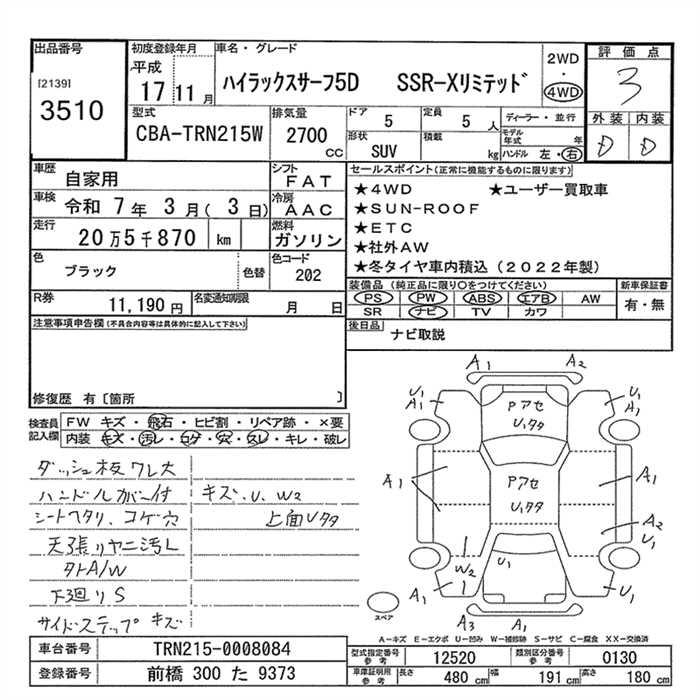 出品番号
[2139]
3510
初度登録年月
平成
17 11 月
車名・グレード
ハイラックスサーフ5D SSR-Xリミテッド
2WD
・
4WD
評価点
3
外装 内装
D D
型式
CBA-TRN215W
排気量
2700
CC
ドア 5
定員 5 人
形状 SUV
積載 kg
ディーラー・並行
モデル年式 年
ハンドル 左・右
車歴 自家用
シフト FAT
車検 令和 7 年 3 月( 3 日)
冷房 AAC
走行 20 万 5 千 870 km
燃料 ガソリン
色 ブラック 色替
色コード 202
R券 11,190 円
名変通知期限 月 日
セールスポイント(正常に機能するものに限ります)
★4WD ★ユーザー買取車
★SUN-ROOF
★ETC
★社外AW
★冬タイヤ車内積込(2022年製)
装備品(純正品に限り○をつけてください)
新車保証書
PS PW ABS エアB AW
SR ナビ TV カワ
有・無
後日品 ナビ取説
注意事項申告欄(不具合内容等は具体的に記入して下さい)
修復歴 有〔箇所 〕
検査員記入欄
FW キズ・飛石・ヒビ割・リペア跡・×要
内装 キズ・汚レ・コゲ・穴・スレ・キレ・破レ
ダッシュ板ワレ大
ハンドルカバー付 キズ、U、W2
シートヘタリ、コゲ穴 上面Uタタ
天張リヤニ汚レ
外A/W
下廻リS
サイドステップキズ
A1 A2
U1 A1
U1 A1
Pアセ
Uタタ
A1
Pアセ
Uタタ
A1
A2
U1
W2
U1
A1
U1
A3 A1
スペア
A-キズ E-エクボ U-凹み W-補修跡 S-サビ C-腐食 XX-交換済
車台番号 TRN215-0008084
登録番号 前橋 300 た 9373
型式指定番号 参考 12520
類別区分番号 参考 0130
車庫証明用 参考 長さ 480 cm 幅 191 cm 高さ 180 cm